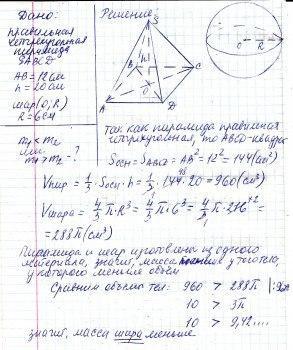 Дано:
правильная
четырехугольная
пирамида
SABCD
AB = 12 см
h = 20 см
шар (O; R)
R = 6 см
m₁ < m₂
или
m₁ > m₂ - ?
Решение:
S
B
C
h
O
A
D
O
R
Так как пирамида правильная
четырехугольная, то ABCD-квадрат
Sосн = SABCD = AB² = 12² = 144 (см²)
Vпир. = 1/3 · Sосн · h = 1/3 · 144 · 20 = 960 (см³)
48
Vшара = 4/3 π · R³ = 4/3 π · 6³ = 4/3 π · 216 =
72
= 288π (см³)
Пирамида и шар изготовлены из одного
материала, значит, масса меньше у того тела,
у которого меньше объем
Сравним объемы тел: 960 > 288π | : 96
10 > 3π
10 > 9,42....
значит, масса шара меньше